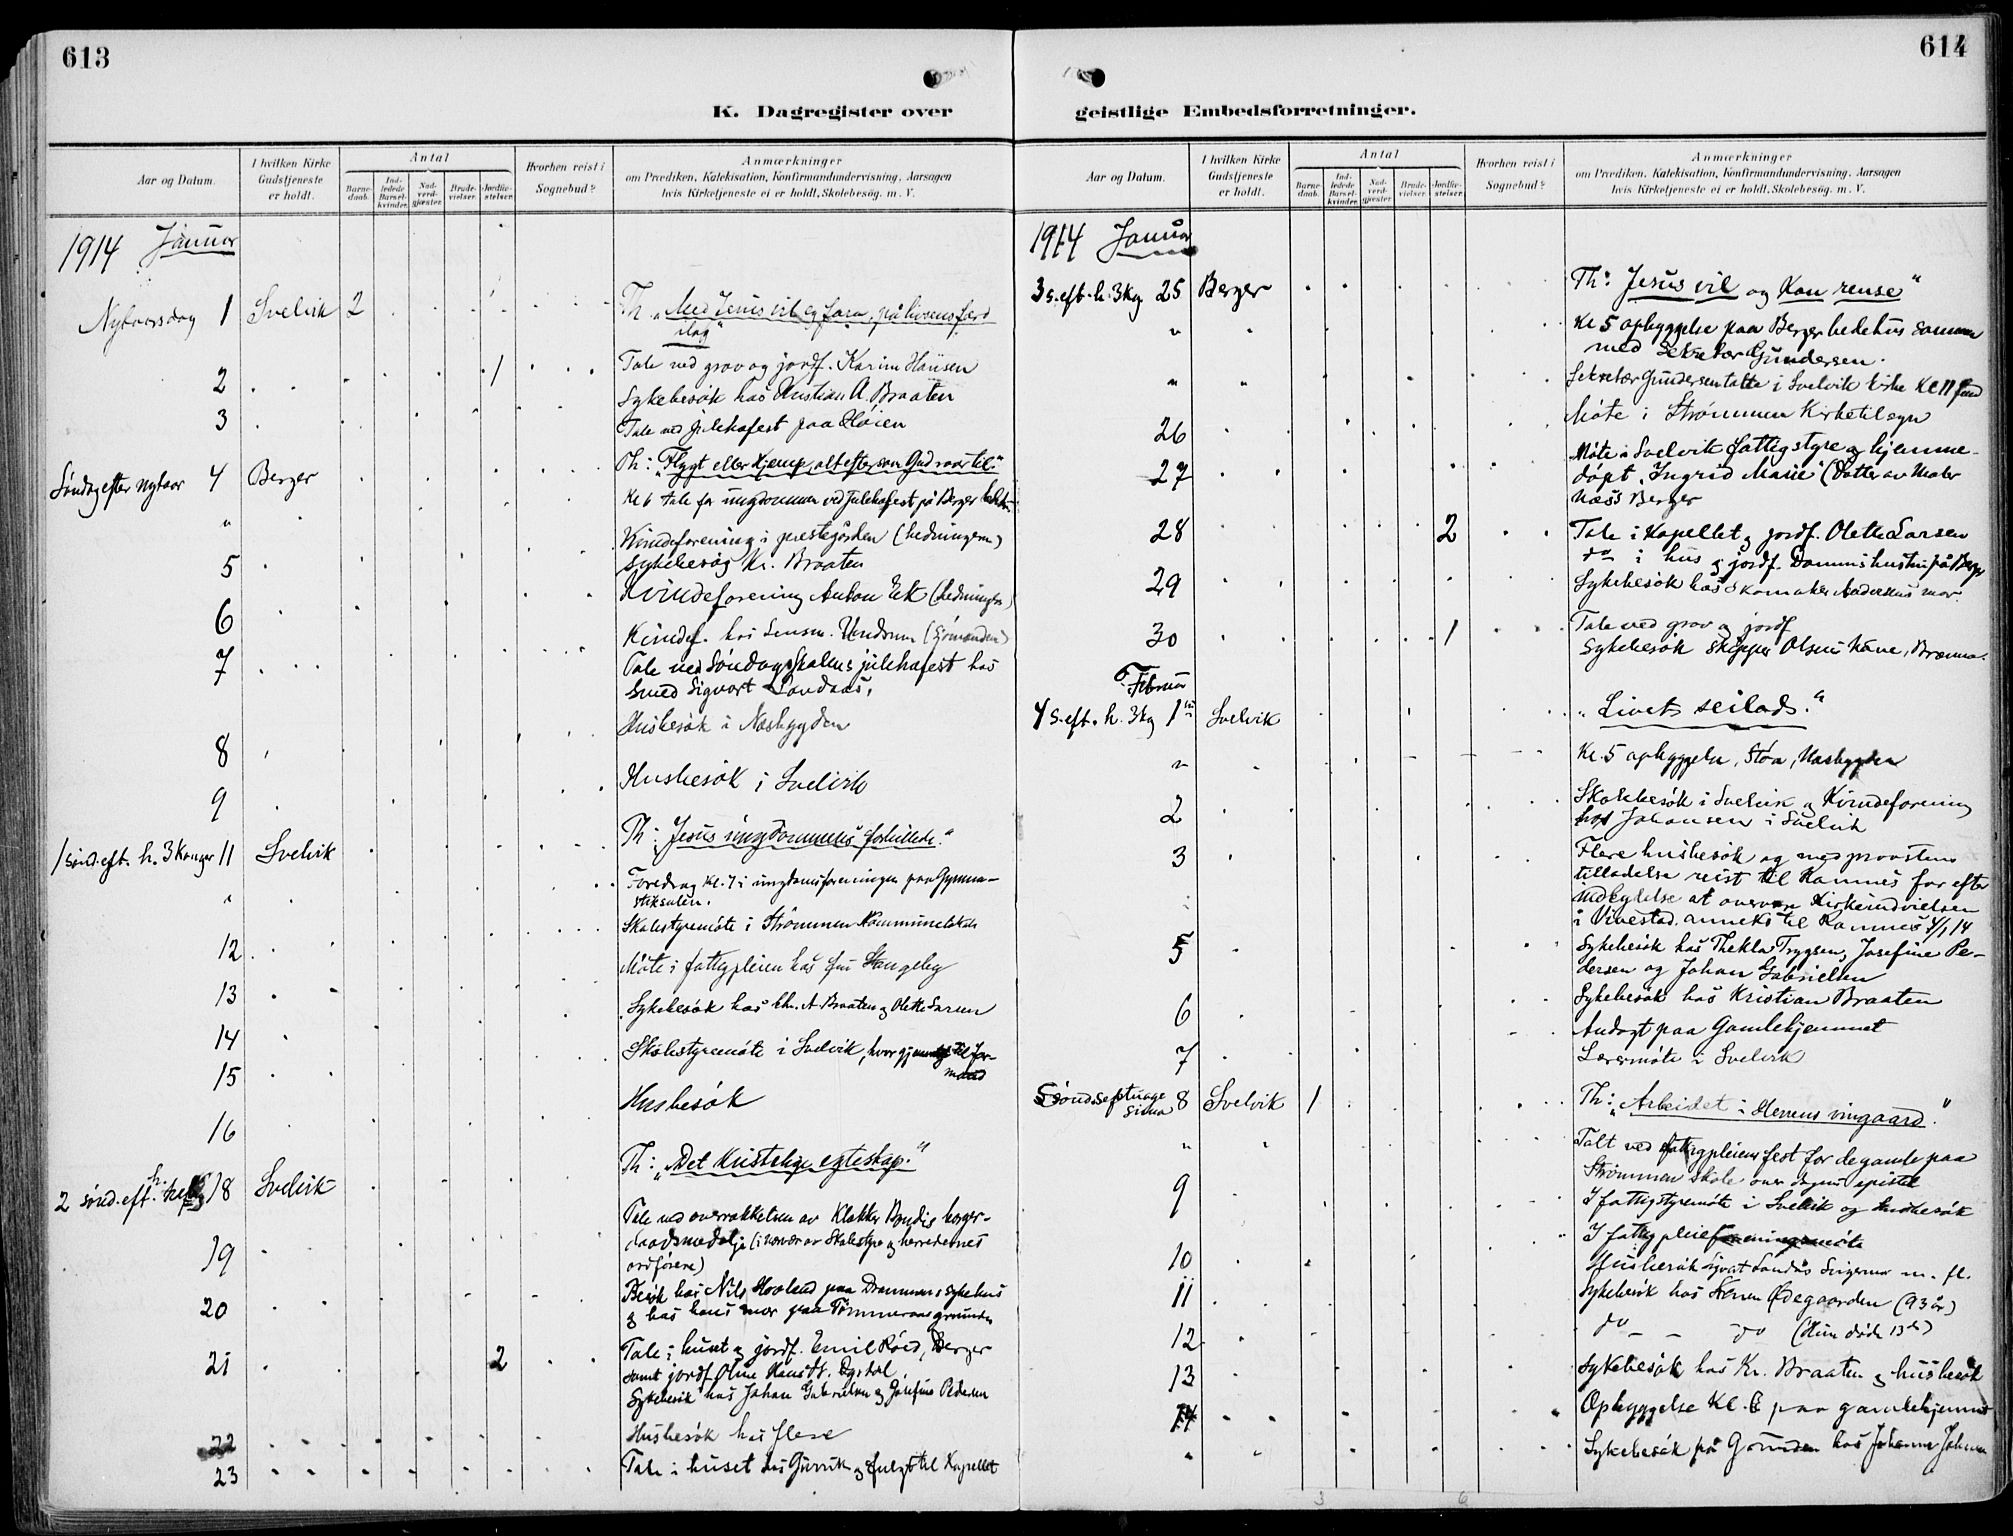 613
K. Dagregister over
Aar og Datum.
I hvilken Kirke Gudstjeneste er holdt.
Antal
Barne-daab.
Ind-ledede Barsel-kvinder.
Nad-verd-gjester.
Brude-vielser.
Jordfæ-stelser.
Hvorhen reist i Sognebud?
Anmærkninger
om Prædiken, Katekisation, Konfirmandundervisning, Aarsagen
hvis Kirketjeneste ei er holdt, Skolebesøg. m. V.
1914 Januar
Nytaarsdag 1 Svelvik 2 Th. „Med Jesus vil eg fara, på livsens ferd
idag"
2 1 Tale ved grav og jordf. Karin Hansen
Sykebesøk hos Kristian A. Braaten
3 Tale ved julehafest paa Høien
Søndag efter nytaar 4 Berger Th: „Flygt eller Kjemp, alt eftersom Gud raar til."
" Kl 6 tale for ungdommen ved julehafest på Berger
5 Kvindeforening i prestegården (ledningen)
Sykebesøg Kr. Braaten
6 Kvindeforening Anton Ek
7 Kvindef. hos Lensm. (Sjømanden)
Tale ved Søndagsskolens julehafest hos
Smed Sigvart Landaas,
8 Husbesøk i Nesbygden
9 Husbesøk i Svelvik
1 sønd. eft. h. 3 Konger 11 Svelvik Th: „Jesus ungdommens forbillede."
" Foredrag Kl. 7 i ungdomsforeningen paa Gymna-
stiksalen.
12 Skolestyremøte i Strømmen Kommunelokale
13 Møte i fattigpleien hos frú Stangeby
14 Sykebesøk hos Chr. A Braaten og Olette Larsen
15 Skolestyremøte i Svelvik, hvor gjenvalgt til for-
mand
16 Husbesøk
2 sønd. eft. h. 18 Svelvik Th: „Det Kristelige egteskap."
19 Tale ved overrækkelsen av Klokker Bondis borger-
daadsmedalje (i nærvær av Skolestyre og herredernes
ordførere)
20 Besøk hos Nils Hovland paa Drammens sykehus
og hos hans mor paa Tømmeraasgrunden
21 2 Tale i huset og jordf. Emil Røed, Berger
samt jordf. Oline Hansdt. Egsdal
Sykebesøk hos Johan Gabrielsen og Josefine Pedersen
22 Husbesøk hos flere
23 Tale i huset hos og fulgt til Kapellet
614
geistlige Embedsforretninger.
Aar og Datum.
I hvilken Kirke Gudstjeneste er holdt.
Antal
Barne-daab.
Ind-ledede Barsel-kvinder.
Nad-verd-gjester.
Brude-vielser.
Jordfæ-stelser.
Hvorhen reist i Sognebud?
Anmærkninger
om Prædiken, Katekisation, Konfirmandundervisning, Aarsagen
hvis Kirketjeneste ei er holdt, Skolebesøg. m. V.
1914 Januar
3 s. eft. h. 3 kg 25 Berger Th: „Jesus vil og Kan rense"
" Kl 5 opbyggelse paa Berger bedehus sammen
med Sekretær Gundersen.
" Sekretær Gundersen talte i Svelvik kirke Kl 11
26 Møte i Strømmen Kirketilsyn
27 Møte i Svelvik fattigstyre og hjemme-
døpt „Ingrid Marie" (Datter av Maler
Næss Berger
28 2 Tale i Kapellet og jordf. Olette Larsen
do i hus og jordf. Dammis hustru på Berger
29 Sykebesøk hos Skomaker Andersens mor.
30 1 Tale ved grav og jordf
Sykebesøk skipper Olsens kone,
Februar
4 s. eft. h. 3 kg 1ste Svelvik „Livets seilads."
" Kl. 5 opbyggelse, Støa, Nesbygden
2 Skolebesøk i Svelvik og Kvindeforening
hos Johansen i Svelvik
3 Flere husbesøk og med provstens
tilladelse reist til Ramnes for efter
indbydelse at overvære Kirkeindvielsen
i Vivestad anneks til Ramnes 4/2 14
5 Sykebesøk hos Thekla Trygsen, Josefine Pe-
dersen og Johan Gabrielsen
6 Sykebesøk hos Kristian Braaten
Andagt paa Gamlehjemmet
7 Lærermøte i Svelvik
Sønds. septuage
sima 8 Svelvik 1 Th: „Arbeidet i Herrens vingaard."
" Talt ved fattigpleiens fest for de gamle paa
Strømmen skole over dagens epistel
9 I fattigstyremøte i Svelvik og husbesøk
I fattigpleieforeningsmøte
10 Husbesøk Sigvat Landås m. fl.
11 Sykebesøk hos Ødegaarden (93 år)
12 do — — do (Hun døde 13de)
13 Sykebesøk hos Kr. Braaten og husbesøk
14 Opbyggelse Kl. 6 paa gamlehjemmet
" Sykebesøk på Grunden hos Johanne
3 6